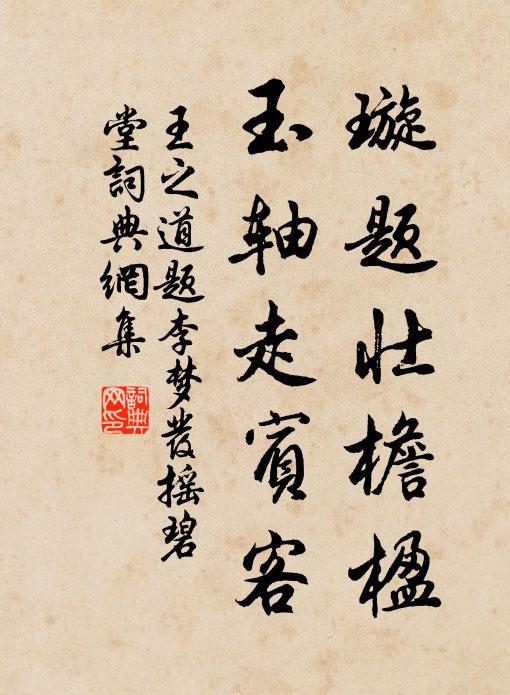 璇题壮檐楹
玉轴走賓客
王之道题李梦發摇碧
堂詞典網集
詞典网印